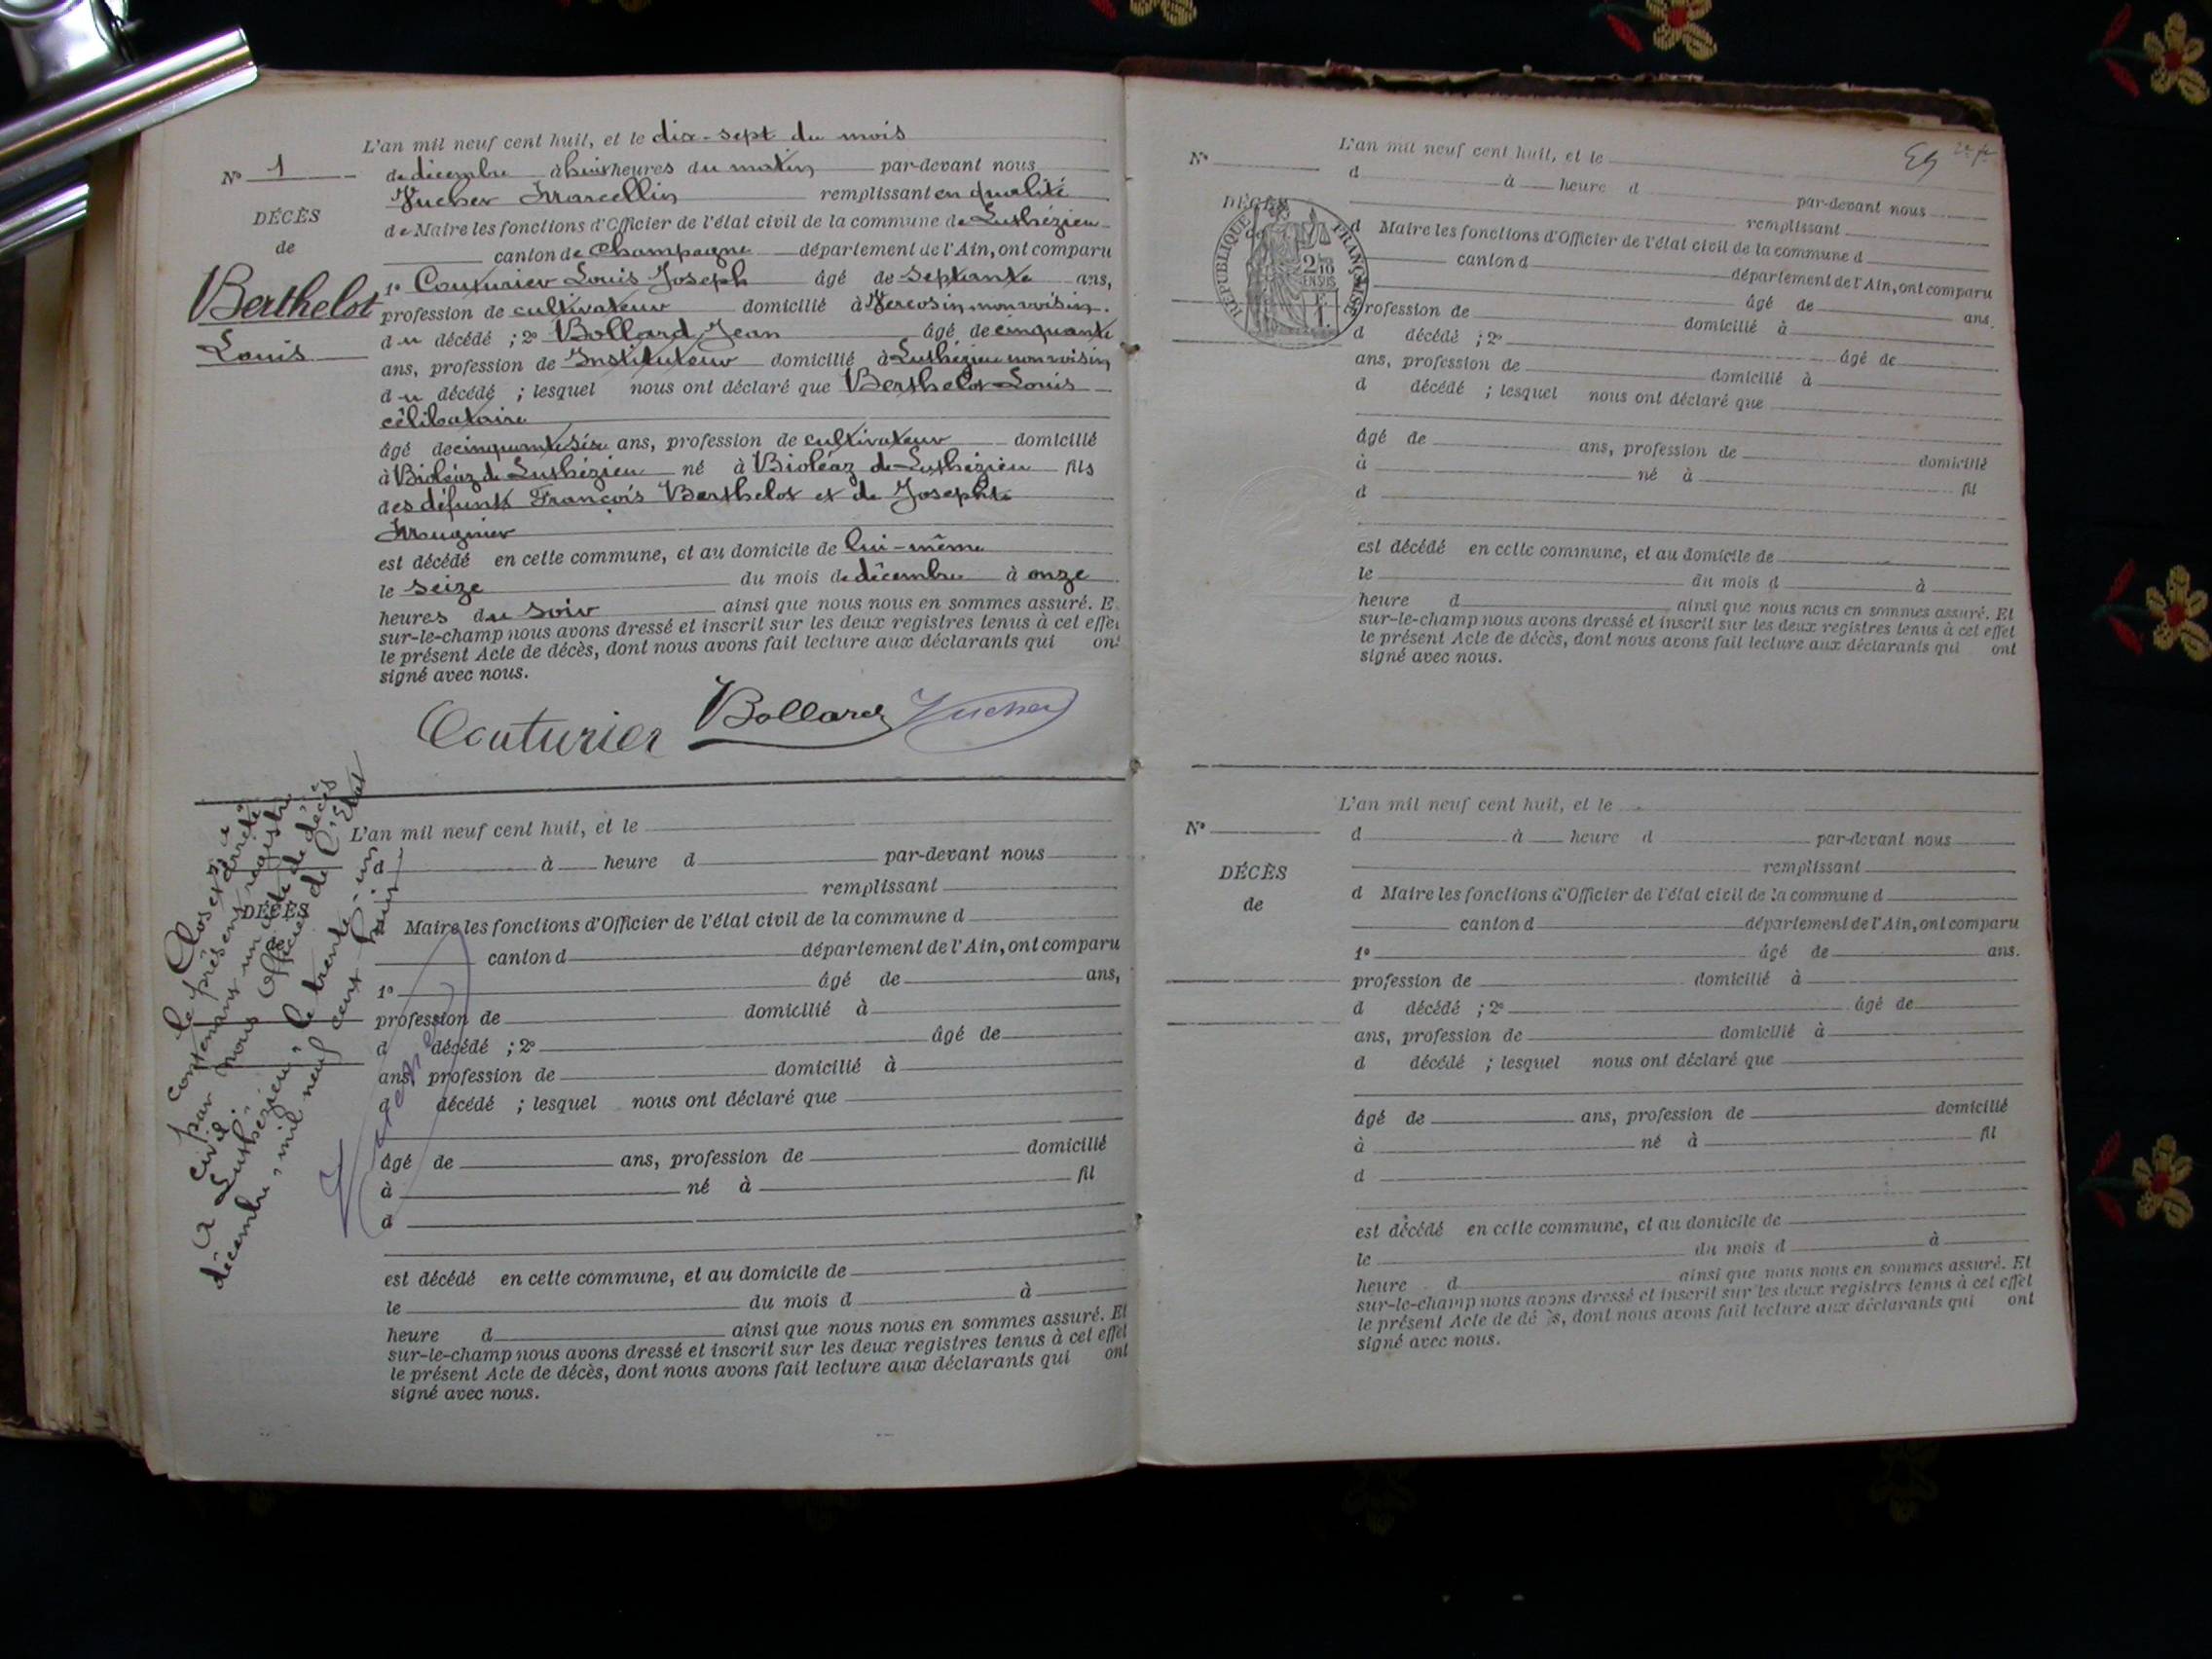 L'an mil neuf cent huit, et le dix-sept du mois
N° 1 de décembre à huit heures du matin par-devant nous
Vucher Marcellin remplissant en qualité
DÉCÈS
de Maire les fonctions d'Officier de l'état civil de la commune de Luthézieu
de
canton de Champagne département de l'Ain, ont comparu
Berthelot
1° Couturier Louis Joseph âgé de septante ans,
profession de cultivateur domicilié à Vercosin non voisin
Louis
du décédé ; 2° Bollard Jean âgé de cinquante
ans, profession de Instituteur domicilié à Luthézieu non voisin
du décédé ; lesquel nous ont déclaré que Berthelot Louis
célibataire
âgé de cinquante six ans, profession de cultivateur domicilié
à Bioléaz de Luthézieu né à Bioléaz de Luthézieu fils
des défunts François Berthelot et de Josephte
Mugnier
est décédé en cette commune, et au domicile de lui-même
le seize du mois de décembre à onze
heures du soir ainsi que nous nous en sommes assuré. E
sur-le-champ nous avons dressé et inscrit sur les deux registres tenus à cet effet
le présent Acte de décès, dont nous avons fait lecture aux déclarants qui ont
signé avec nous.
Couturier Bollard Vucher
Clos et arrêté
le présent registre
contenant un acte de décès
par nous Officier de l'Etat
civil
A Luthézieu, le trente-un
décembre, mil neuf cent huit
L'an mil neuf cent huit, et le
d à heure d par-devant nous
remplissant
DÉCÈS
Maire les fonctions d'Officier de l'état civil de la commune d
de
canton d département de l'Ain, ont comparu
1° âgé de ans,
profession de domicilié à
d décédé ; 2° âgé de
ans, profession de domicilié à
d décédé ; lesquel nous ont déclaré que
âgé de ans, profession de domicilié
à né à fil
d
est décédé en cette commune, et au domicile de
le du mois d à
heure d ainsi que nous nous en sommes assuré. Et
sur-le-champ nous avons dressé et inscrit sur les deux registres tenus à cet effet
le présent Acte de décès, dont nous avons fait lecture aux déclarants qui ont
signé avec nous.
Vucher
L'an mil neuf cent huit, et le
N° d à heure d par-devant nous
remplissant
DÉCÈS
RÉPUBLIQUE FRANÇAISE
2/10 EN SUS
d Maire les fonctions d'Officier de l'état civil de la commune d
canton d département de l'Ain, ont comparu
âgé de ans.
profession de domicilié à
d décédé ; 2° âgé de
ans, profession de domicilié à
d décédé ; lesquel nous ont déclaré que
âgé de ans, profession de domicilié
à né à fil
d
est décédé en cette commune, et au domicile de
le du mois d à
heure d ainsi que nous nous en sommes assuré. Et
sur-le-champ nous avons dressé et inscrit sur les deux registres tenus à cet effet
le présent Acte de décès, dont nous avons fait lecture aux déclarants qui ont
signé avec nous.
L'an mil neuf cent huit, et le
N° d à heure d par-devant nous
remplissant
DÉCÈS
d Maire les fonctions d'Officier de l'état civil de la commune d
de
canton d département de l'Ain, ont comparu
1° âgé de ans.
profession de domicilié à
d décédé ; 2° âgé de
ans, profession de domicilié à
d décédé ; lesquel nous ont déclaré que
âgé de ans, profession de domicilié
à né à fil
d
est décédé en cette commune, et au domicile de
le du mois d à
heure d ainsi que nous nous en sommes assuré. Et
sur-le-champ nous avons dressé et inscrit sur les deux registres tenus à cet effet
le présent Acte de décès, dont nous avons fait lecture aux déclarants qui ont
signé avec nous.